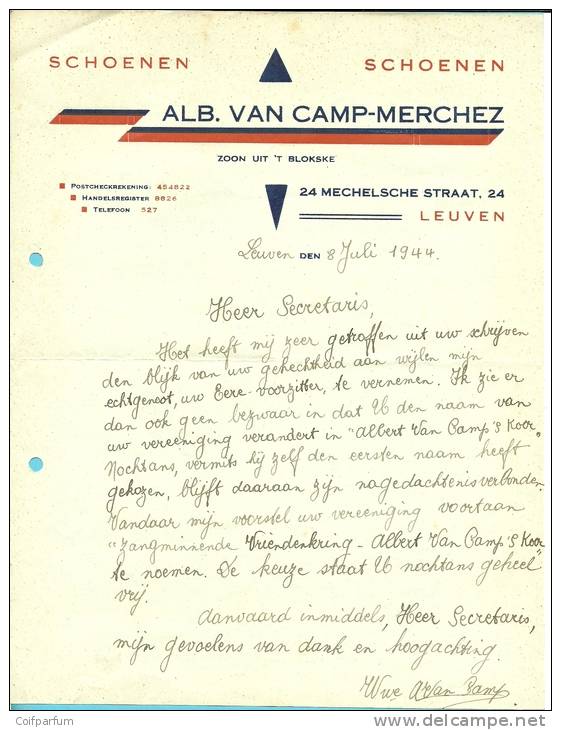 SCHOENEN SCHOENEN
ALB. VAN CAMP-MERCHEZ
ZOON UIT 'T BLOKSKE
POSTCHECKREKENING: 454822
HANDELSREGISTER 8826
TELEFOON 527
24 MECHELSCHE STRAAT, 24
LEUVEN
Leuven DEN 8 Juli 1944.
Heer Secretaris,
Het heeft mij zeer getroffen uit uw schrijven
den blijk van uw gehechtheid aan wijlen mijn
echtgenoot, uw Eere-voorzitter, te vernemen. Ik zie er
dan ook geen bezwaar in dat U den naam van
uw vereeniging verandert in "Albert Van Camp's Koor"
Nochtans, vermits hij zelf den eersten naam heeft
gekozen, blijft daaraan zijn nagedachtenis verbonden.
Vandaar mijn voorstel uw vereeniging voortaan
"Zangminnende Vriendenkring - Albert Van Camp's Koor"
te noemen. De keuze staat U nochtans geheel
vrij.
Aanvaard inmiddels, Heer Secretaris,
mijn gevoelens van dank en hoogachting.
Wwe A Van Camp
Coifparfum
delcampe.net